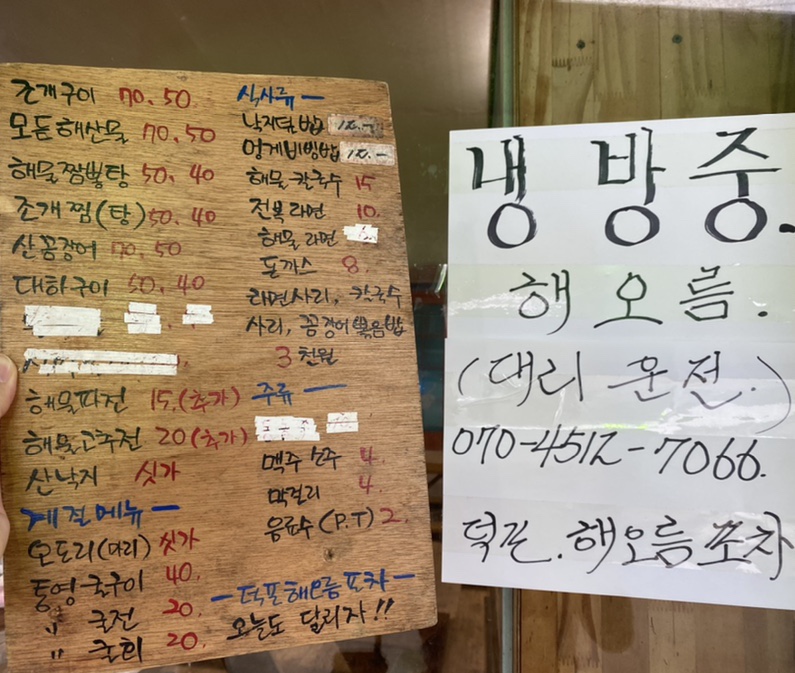 조개구이 70. 50
모듬해산물 70. 50
해물짬뽕탕 50. 40
조개찜(탕) 50. 40
산꼼장어 70. 50
대하구이 50. 40
해물파전 15.(추가)
해물고추전 20(추가)
산낙지 싯가
계절메뉴 —
오도리(마리) 싯가
통영 굴구이 40.
〃 굴전 20.
〃 굴회 20.
식사류 —
낙지덮밥 10.-
멍게비빔밥 10.-
해물칼국수 15
전복라면 10.
해물라면 6.
돈까스 8
라면사리, 칼국수
사리, 꼼장어볶음밥
3천원
주류 —
맥주 소주 4.
막걸리 4.
음료수(P.T) 2.
— 덕포해오름포차 —
오늘도 달리자!!
냉방중.
해오름.
(대리운전.)
070-4512-7066.
덕포.해오름포차